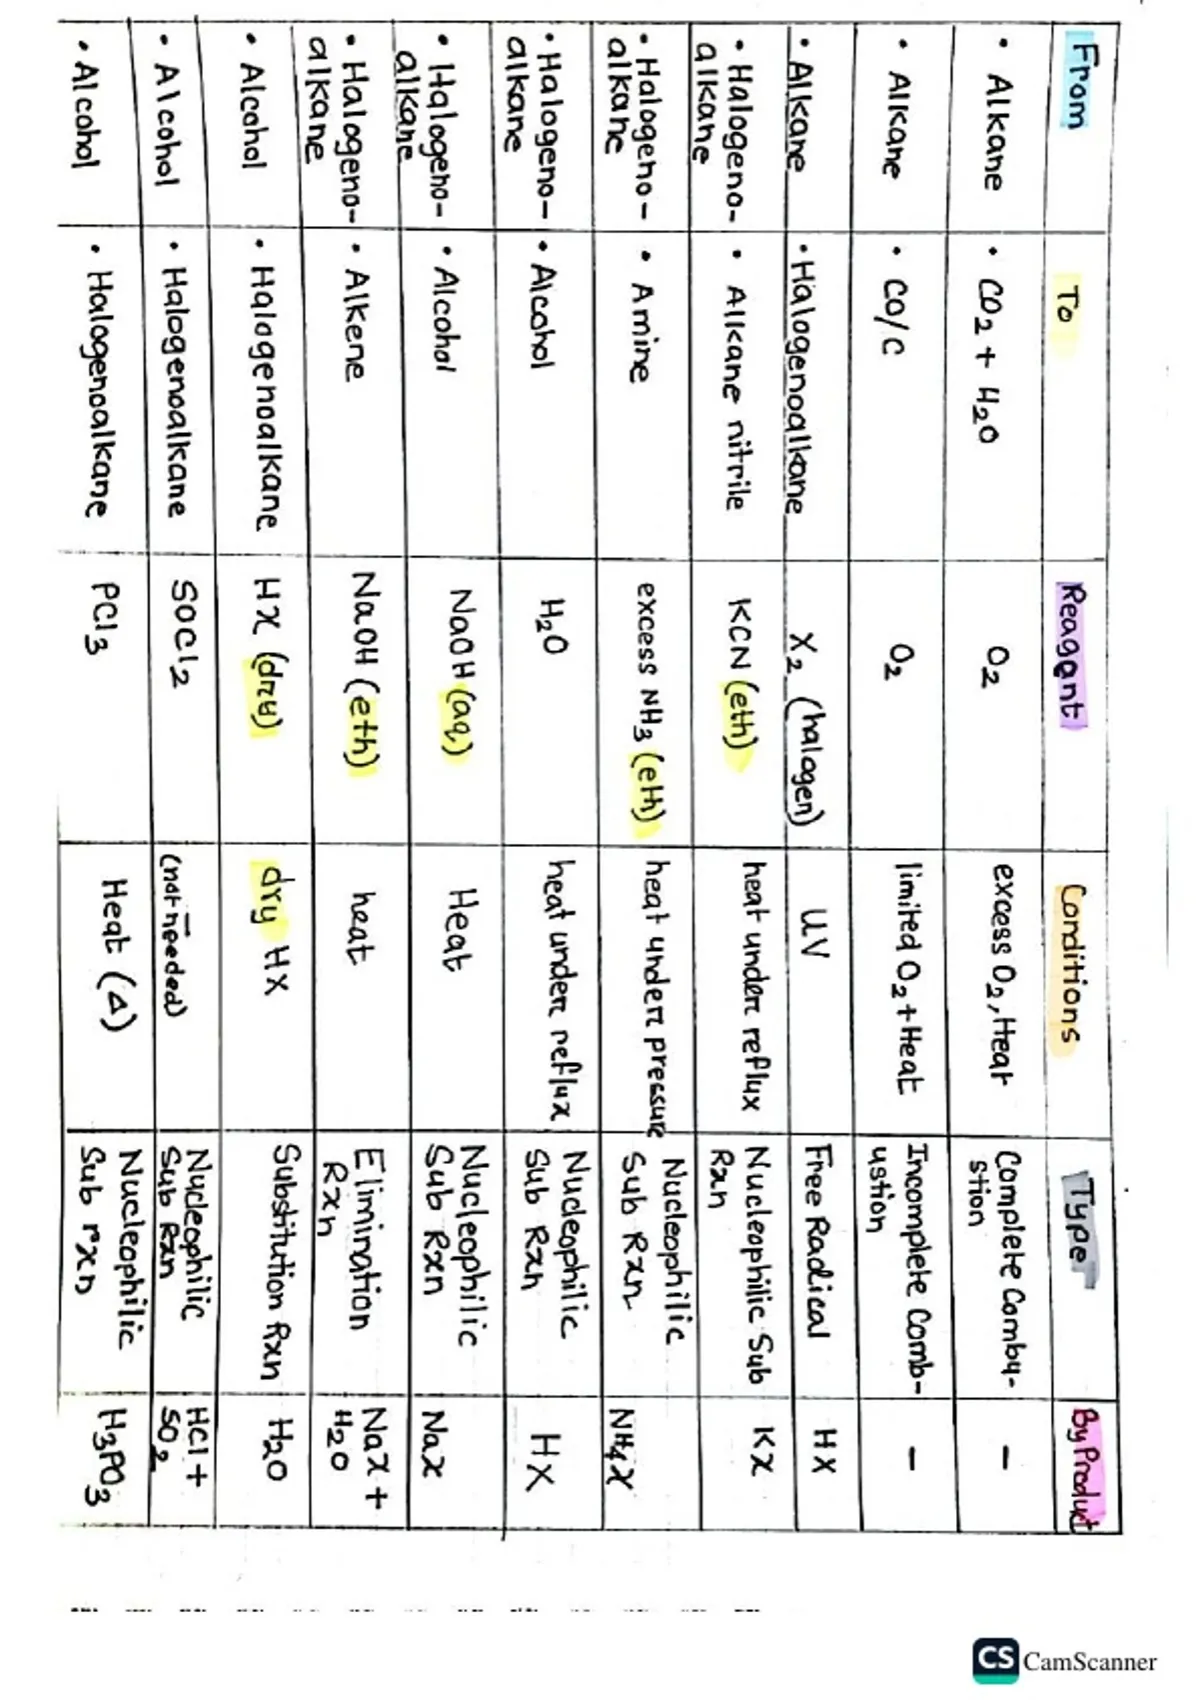 From To Reagent Conditions Type By Product
• Alkane • CO2 + H2O O2 excess O2, Heat Complete Combu-
stion –
• Alkane • CO/C O2 limited O2 + Heat Incomplete Comb-
ustion –
• Alkane • Halogenoalkane X2 (halogen) UV Free Radical HX
• Halogeno-
alkane • Alkane nitrile KCN (eth) heat under reflux Nucleophilic Sub
Rxn KX
• Halogeno-
alkane • Amine excess NH3 (eth) heat under pressure Nucleophilic
Sub Rxn NH4X
• Halogeno-
alkane • Alcohol H2O heat under reflux Nucleophilic
Sub Rxn HX
• Halogeno-
alkane • Alcohol NaOH (aq) Heat Nucleophilic
Sub Rxn NaX
• Halogeno-
alkane • Alkene NaOH (eth) heat Elimination
Rxn NaX +
H2O
• Alcohol • Halogenoalkane HX (dry) dry HX Substitution Rxn H2O
• Alcohol • Halogenoalkane SOCl2 – (not needed) Nucleophilic
Sub Rxn HCl +
SO2
• Alcohol • Halogenoalkane PCl3 Heat (Δ) Nucleophilic
Sub rxn H3PO3
CS CamScanner